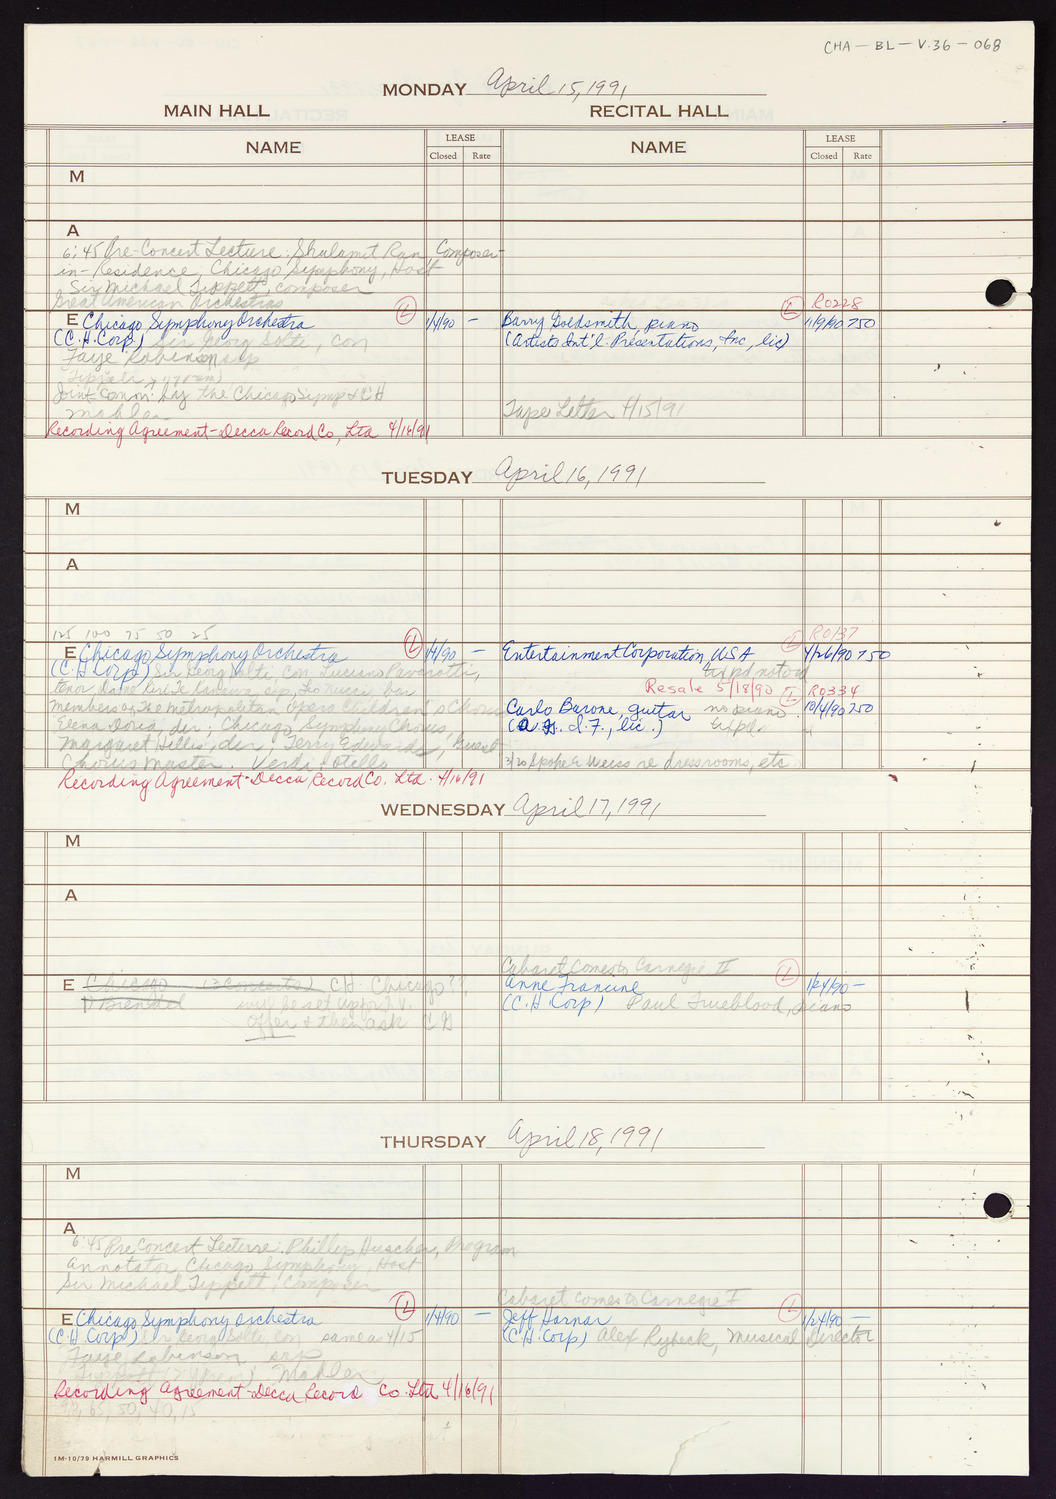 CHA-BL-V.36-068
MONDAY April 15, 1991
MAIN HALL RECITAL HALL
NAME LEASE NAME LEASE
Closed Rate Closed Rate
M
A
6:45 Pre-Concert Lecture: Shulamit Ran, Composer-
in-Residence, Chicago Symphony, Host
Sir Michael Tippett, composer
Great American Orchestras
R0228
E Chicago Symphony Orchestra L 1/4/90 — Barry Goldsmith, piano L 11/9/90 750
(C.H. Corp) Sir Georg Solti, Con (Artists Int'l. Presentations, Inc, lic)
Faye Robinson, sop
Tippett
Joint Comm. by the Chicago Symp & CH
Mahler Tape Letter 4/15/91
Recording Agreement-Decca Record Co, Ltd 4/16/91
TUESDAY April 16, 1991
M
A
125 100 75 50 25 R0137
E Chicago Symphony Orchestra L 1/4/90 — Entertainment Corporation, USA L 4/26/90 750
(C.H. Corp) Sir Georg Solti, Con, Luciano Pavarotti,
tenor, Dame Kiri Te Kanawa, sop, Leo Nucci, bar Resale 5/18/90 L R0334
Members of the Metropolitan Opera Children's Chorus Carlo Barone, guitar no piano 10/4/90 250
Elena Doria, dir; Chicago Symphony Chorus (A.H.I.F., lic.)
Margaret Hillis, dir; Terry Edwards, Guest
Chorus Master. Verdi: Otello 3/20 Spoke Weiss re dressrooms, etc
Recording Agreement-Decca Record Co. Ltd. 4/16/91
WEDNESDAY April 17, 1991
M
A
Cabaret Comes to Carnegie II
E Chicago (3 Concerts) CH Chicago?? Anne Francine L 1/24/90 —
Brendel will be set up (C.H. Corp) Paul Trueblood, piano
offer & then ask CH
THURSDAY April 18, 1991
M
A
6:45 Pre Concert Lecture: Phillip Huscher, Program
Annotator Chicago Symphony, Host
Sir Michael Tippett, Composer
Cabaret Comes to Carnegie I
E Chicago Symphony Orchestra L 1/4/90 — Jeff Harnar L 1/24/90 —
(C.H. Corp) Sir Georg Solti, Con same as 4/15 (C.H. Corp) Alex Rybeck, Musical Director
Faye Robinson sop
Tippett Mahler
Recording Agreement-Decca Record Co. Ltd 4/16/91
90, 65, 50, 40, 15
1M-10/79 HARMILL GRAPHICS